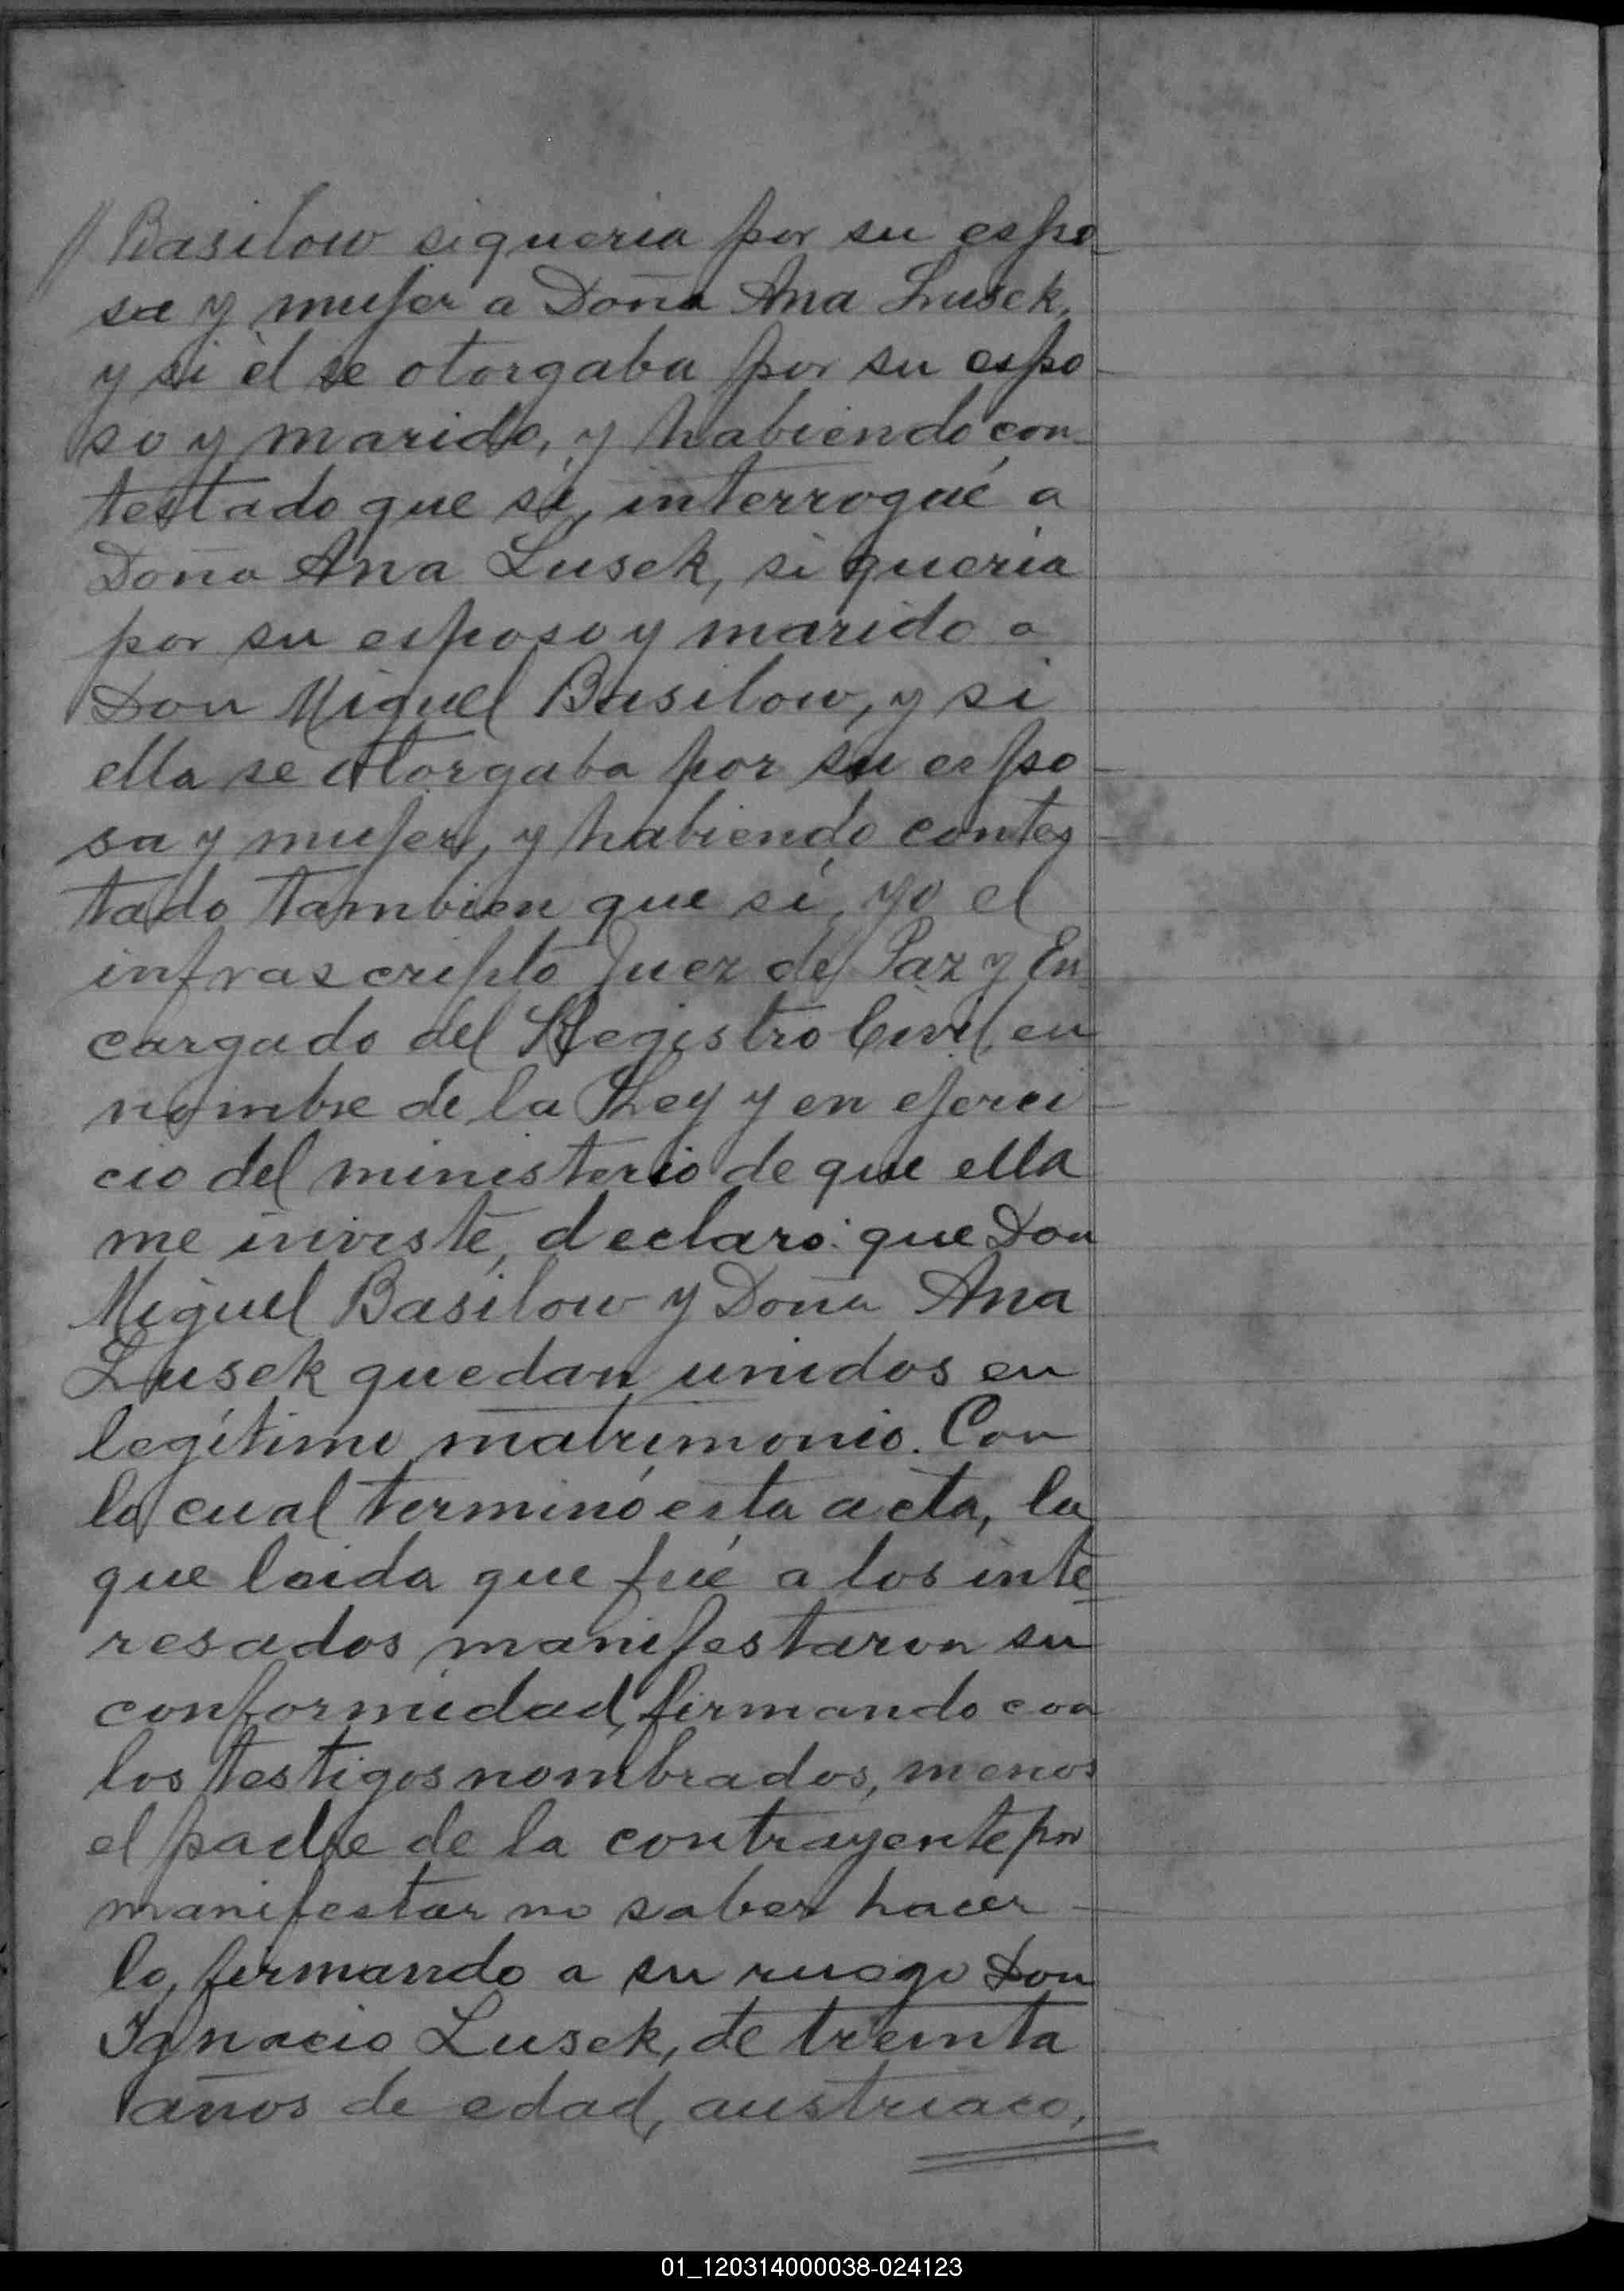 // Basilow si queria por su espo-
sa y mujer a Doña Ana Lusek,
y si èl se otorgaba por su espo-
so y marido, y habiendo con-
testado que sí, interrogué a
Doña Ana Lusek, si queria
por su esposo y marido a
Don Miguel Basilow, y si
ella se otorgaba por su espo-
sa y mujer, y habiendo contes-
tado tambien que sí, yo el
infrascripto Juez de Paz y En-
cargado del Registro Civil, en
nombre de la Ley y en ejerci-
cio del ministerio de que ella
me inviste, declaro: que Don
Miguel Basilow y Doña Ana
Lusek quedan unidos en
legítimo matrimonio. Con
lo cual terminó esta acta, la
que leida que fué a los inte-
resados manifestaron su
conformidad, firmando con
los testigos nombrados, menos
el padre de la contrayente por
manifestar no saber hacer-
lo, firmando a su ruego Don
Ignacio Lusek, de treinta
años de edad, austriaco,
01_120314000038-024123